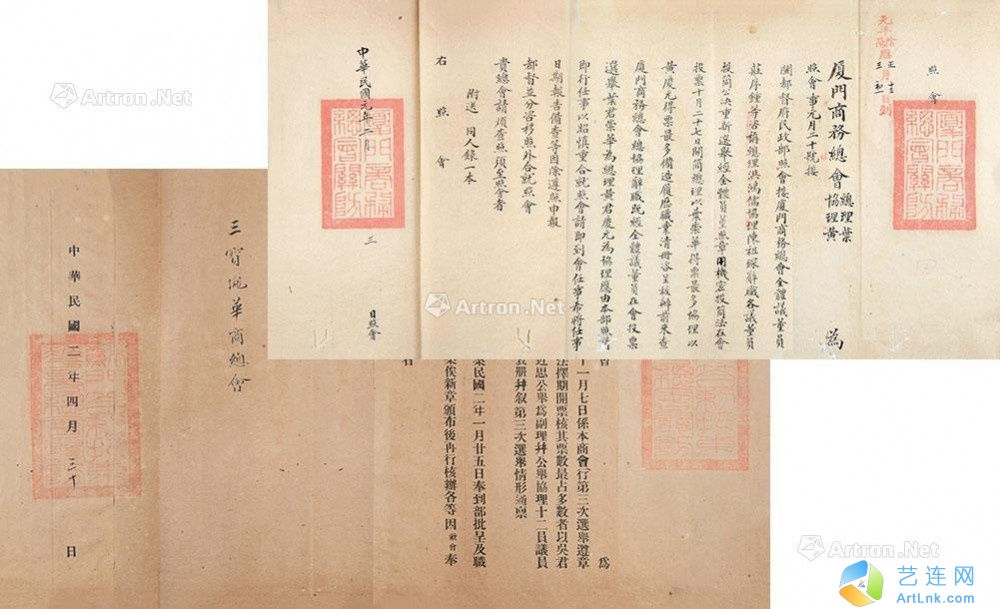 照會
厦門商務總會總理葉協理黃 為
照會事元月二十號接
閩都督府民政部照會接厦門商務總會全體議董員
莊序鐘等咨稱總理洪鴻儒協理陳祖琛辭職各議董員
投筒公决重新選舉經全體員
照章用機密投筒法在會
投票十月二十七日開筒總理以葉崇華得票最多協理以
黃慶元得票最多備造履歷職業清冊咨呈核辦前來查
厦門商務總會總協理辭職既經全體議董員在會投票
選舉葉君崇華為總理黃君慶元為協理應由本部照
即行任事以昭慎重合就照會請即到會任事希將任事
日期報告備查等因除遵照申報
都督並分咨移照外合就照會
貴總會請煩查照須至照會者
附送 同人錄一本
右照會
中華民國元年二月
日照會
為
十一月七日係本商會行第三次選舉遵章
法擇期開票核其票數最占多數者以吳君
近思公舉為副理幷公舉協理十二員議員
表册幷叙第三次選舉情形通禀
業民國二年一月廿五日奉到部批呈及職
案俟新章頒布後再行核辦各等因敝會奉
者
三寶瓏華商總會
中華民國二年四月三十日
Artron.Net
Artron.Net
Artron.Net
Artron.Net
艺连网
ArtLnk.com